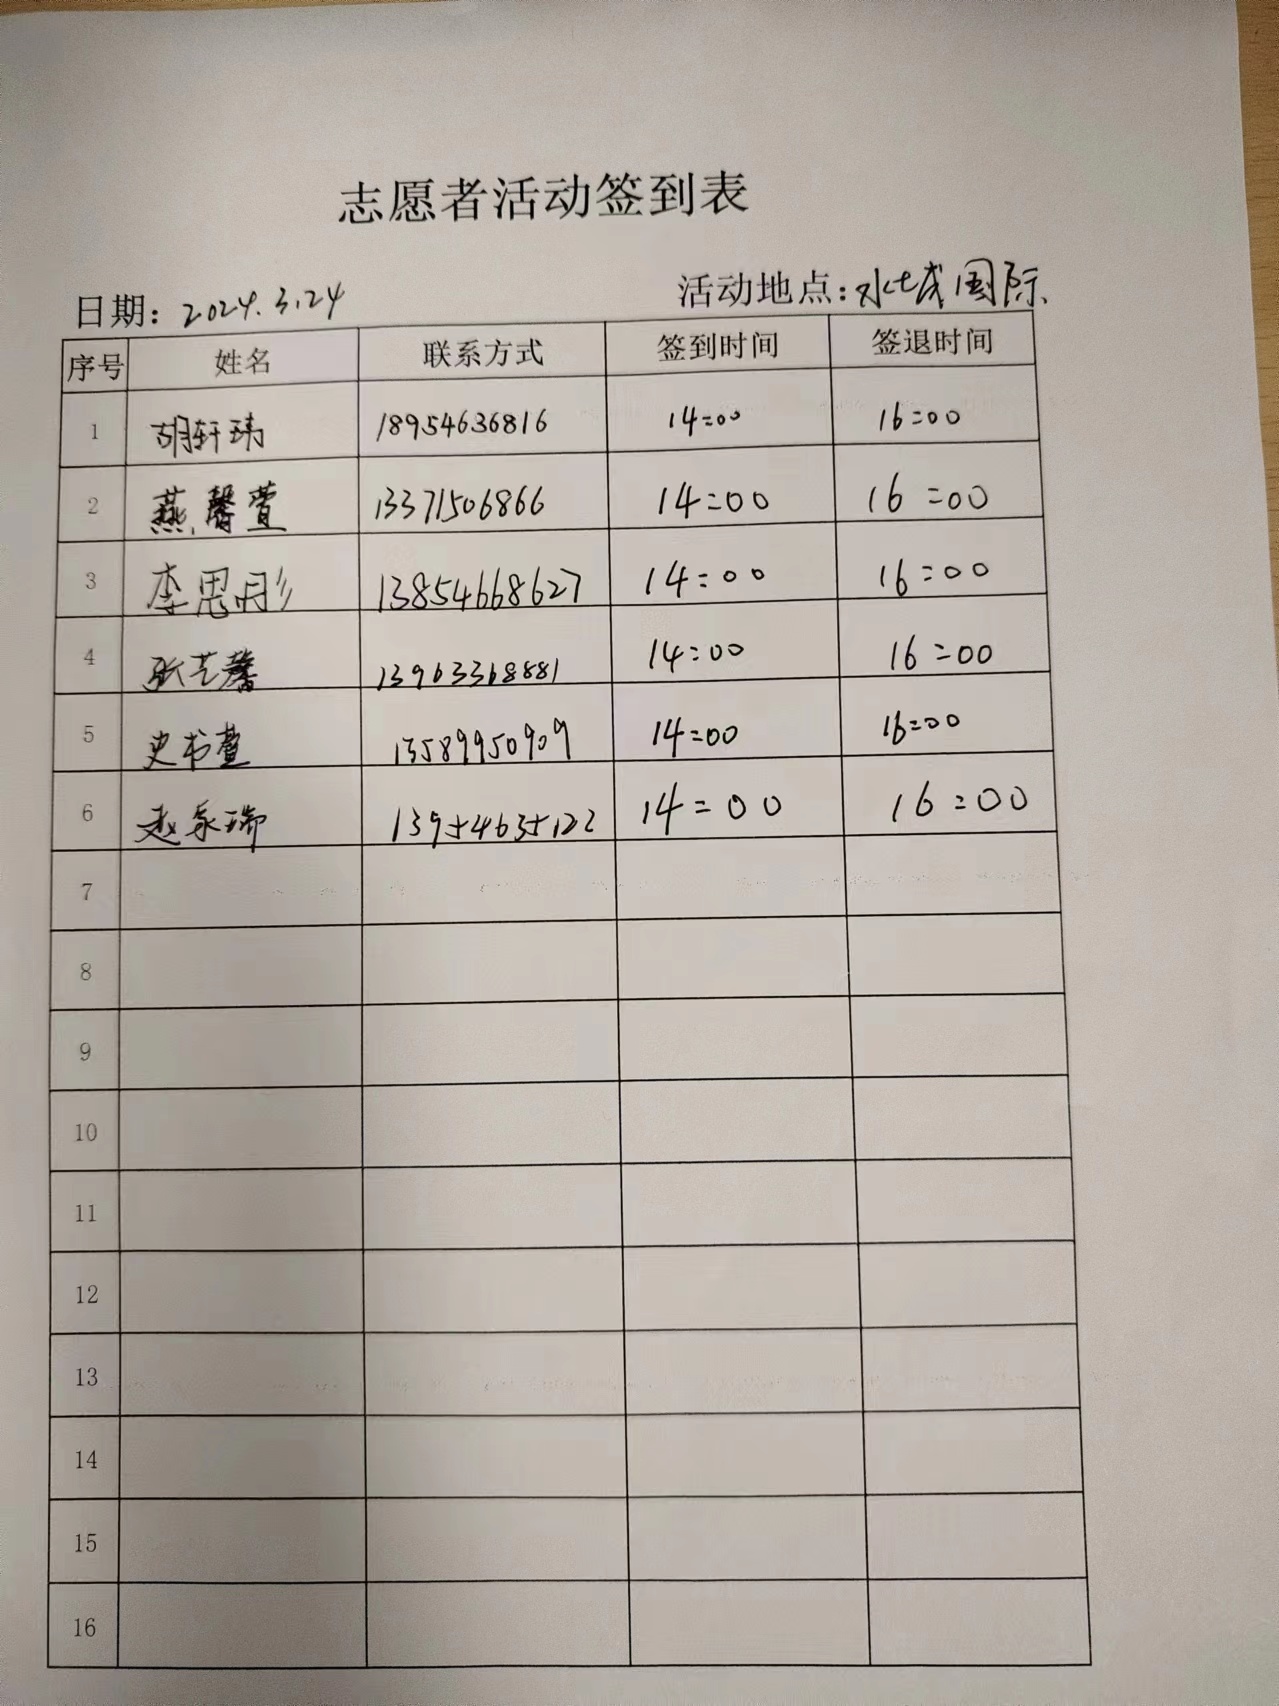 志愿者活动签到表
日期：2024.3.24 活动地点：水城国际
序号 姓名 联系方式 签到时间 签退时间
1 胡轩玮 18954636816 14:00 16:00
2 燕馨萱 13371506866 14:00 16:00
3 李思彤 13854668627 14:00 16:00
4 张艺馨 13963368881 14:00 16:00
5 史书萱 13589950909 14:00 16:00
6 赵永瑞 13954635122 14:00 16:00
7
8
9
10
11
12
13
14
15
16